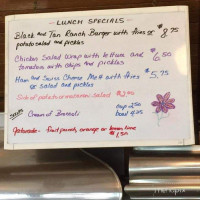 LUNCH SPECIALS
Black and Tan Ranch Burger with fries or $8.75
potato salad and pickles
Chicken Salad Wrap with lettuce and $6.50
tomatoes with chips and pickles
Ham and Swiss Cheese Melt with fries $5.75
or salad and pickles
Side of potato or macaroni salad $2.00
Soup
Cream of Broccoli
cup 2.50
bowl 4.25
Gatorade - Fruit punch, orange or lemon lime
$1.50